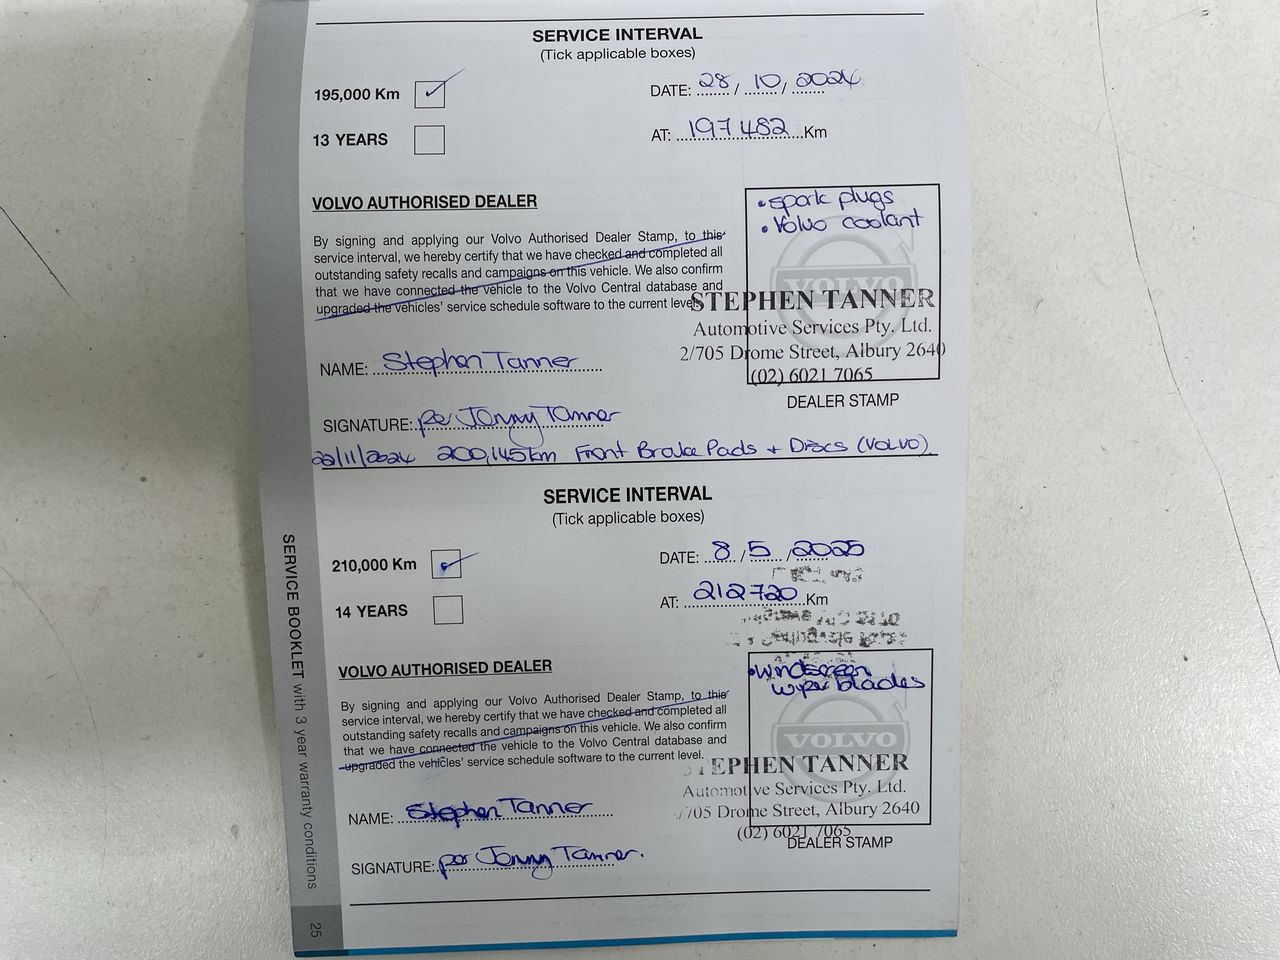 SERVICE INTERVAL
(Tick applicable boxes)
195,000 Km ✓
DATE: 28 / 10 / 2024
13 YEARS
AT: 197482 Km
VOLVO AUTHORISED DEALER
• spark plugs
• Volvo coolant
By signing and applying our Volvo Authorised Dealer Stamp, to this
service interval, we hereby certify that we have checked and completed all
outstanding safety recalls and campaigns on this vehicle. We also confirm
that we have connected the vehicle to the Volvo Central database and
upgraded the vehicles' service schedule software to the current level.
VOLVO
STEPHEN TANNER
Automotive Services Pty. Ltd.
2/705 Drome Street, Albury 2640
(02) 6021 7065
DEALER STAMP
NAME: Stephen Tanner
SIGNATURE: per Jonny Tanner
22/11/2024 200,145km Front Brake Pads + Discs (VOLVO).
SERVICE INTERVAL
(Tick applicable boxes)
210,000 Km ✓
DATE: 8 / 5 / 2025
14 YEARS
AT: 212720 Km
VOLVO AUTHORISED DEALER
• windscreen
wiper blades
By signing and applying our Volvo Authorised Dealer Stamp, to this
service interval, we hereby certify that we have checked and completed all
outstanding safety recalls and campaigns on this vehicle. We also confirm
that we have connected the vehicle to the Volvo Central database and
upgraded the vehicles' service schedule software to the current level.
VOLVO
STEPHEN TANNER
Automotive Services Pty. Ltd.
/705 Drome Street, Albury 2640
(02) 6021 7065
DEALER STAMP
NAME: Stephen Tanner
SIGNATURE: per Jonny Tanner.
SERVICE BOOKLET with 3 year warranty conditions
25